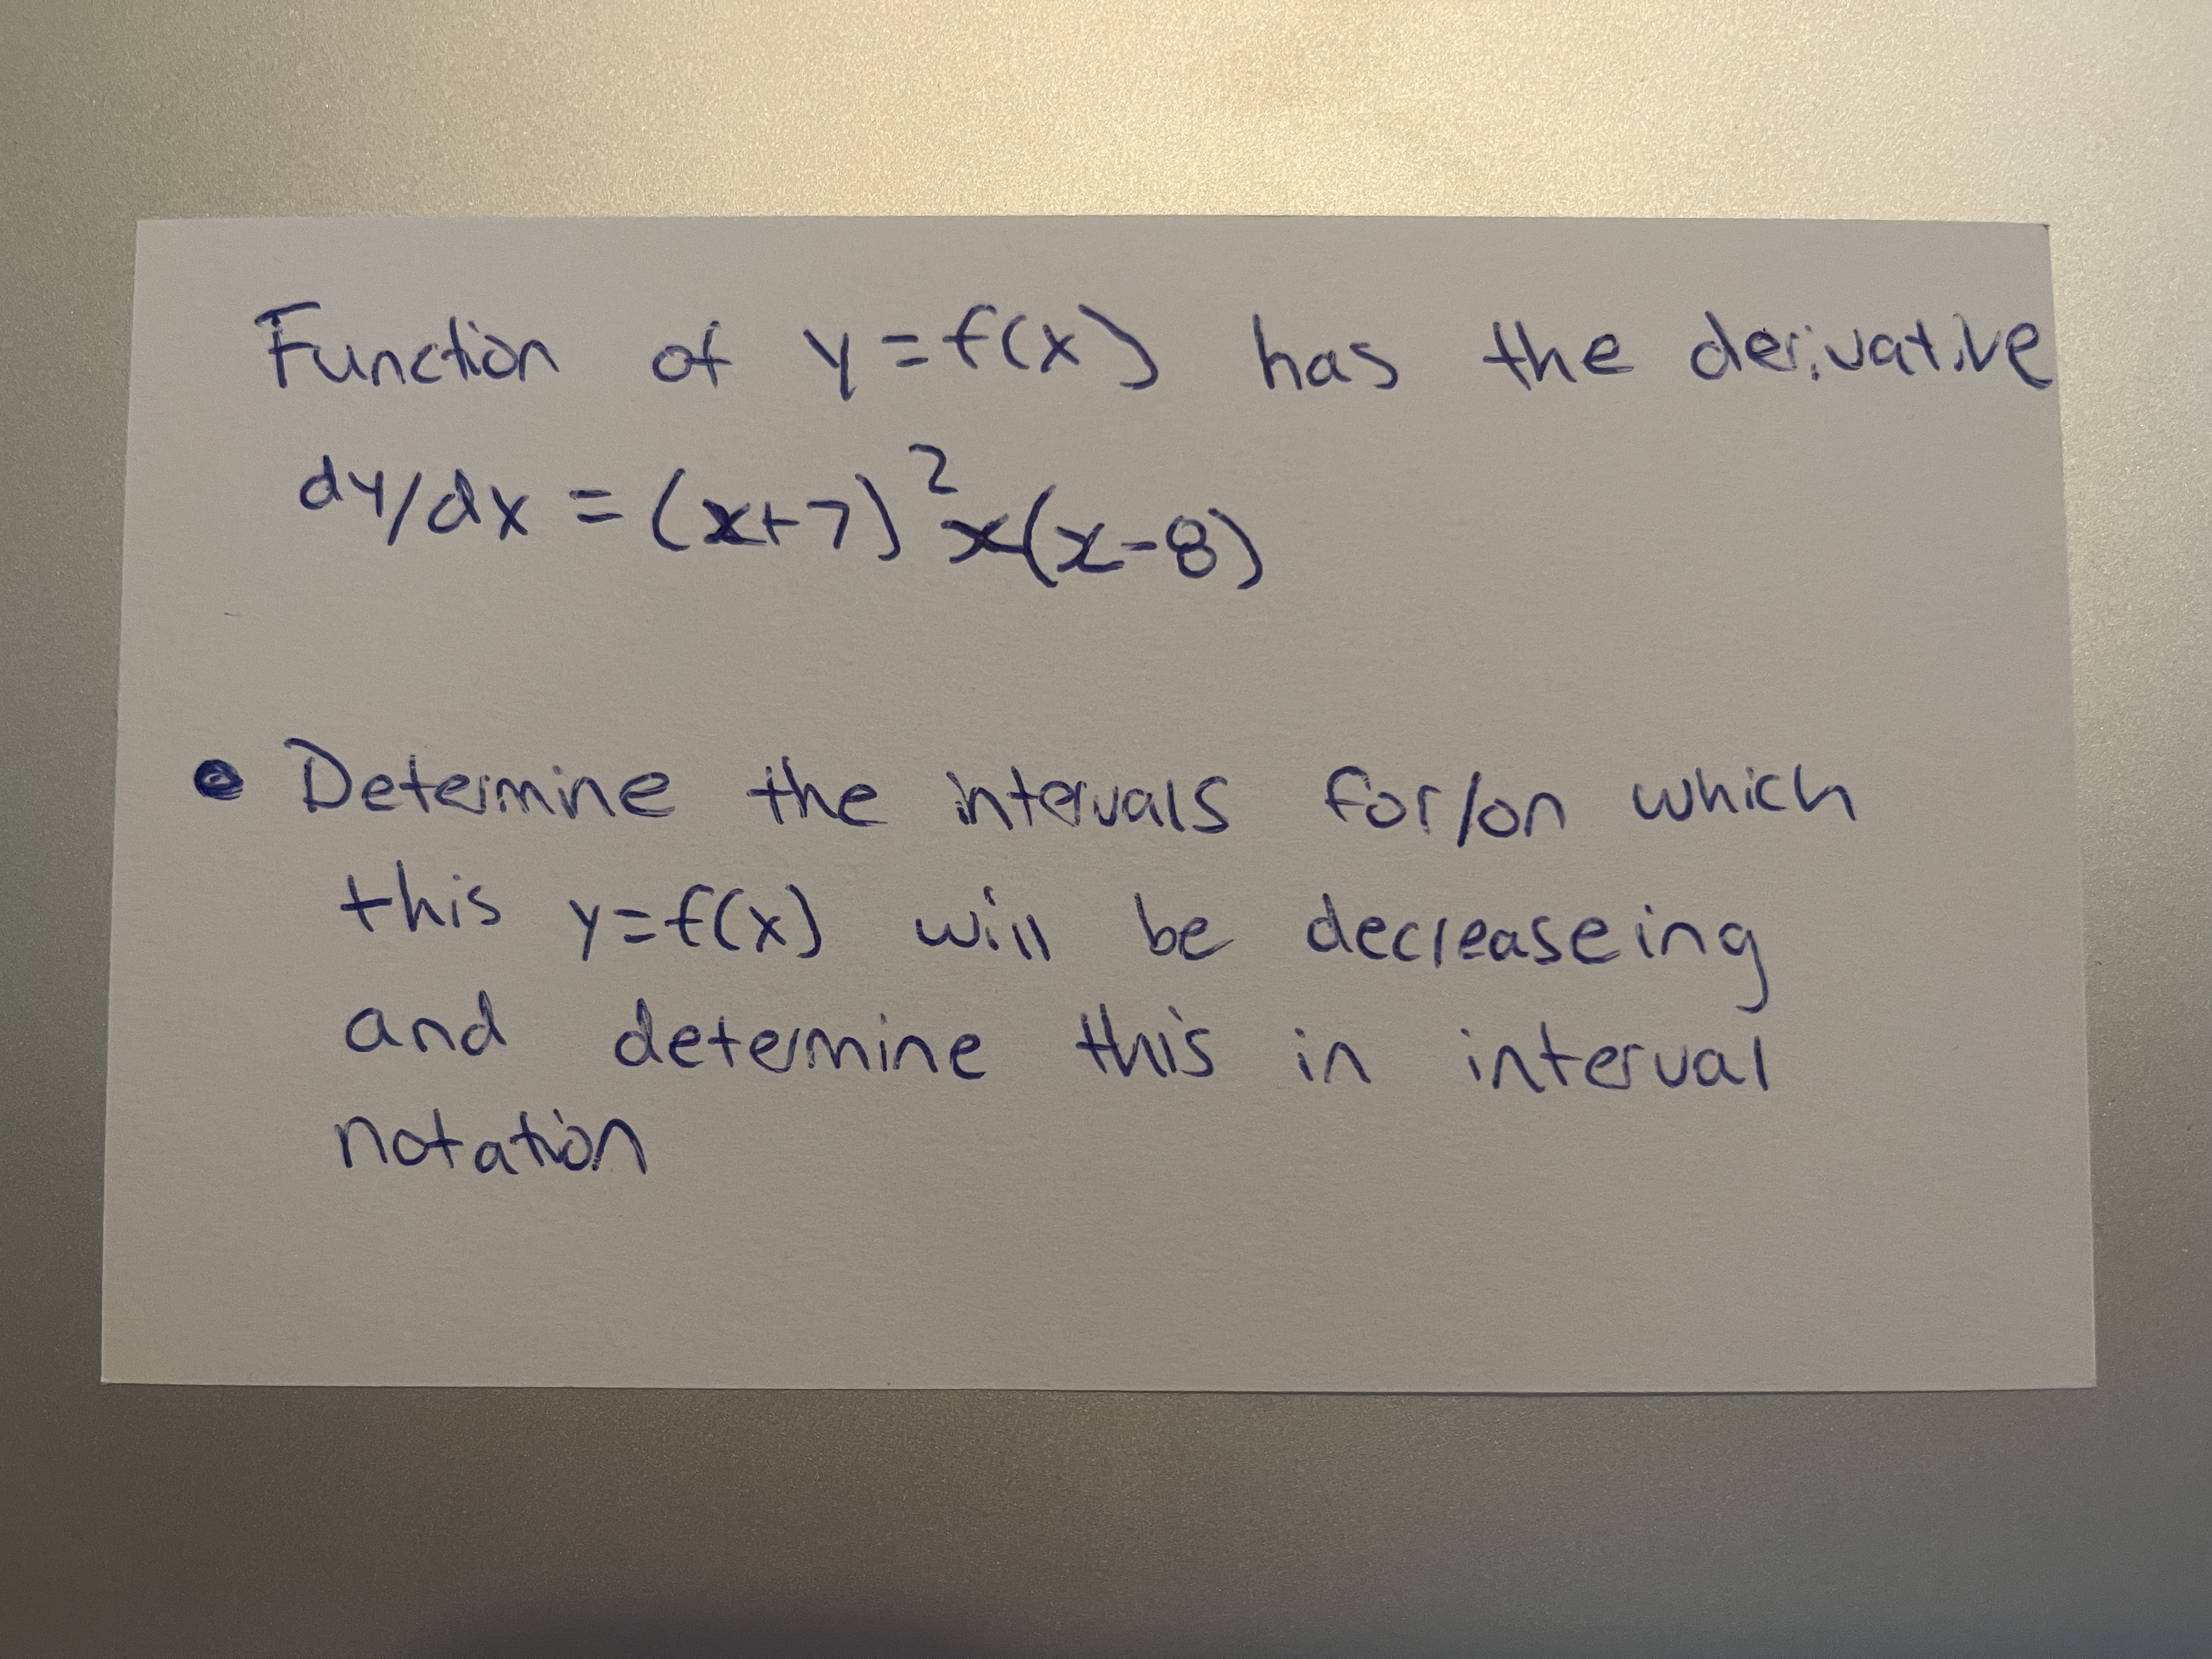 Function of y=f(x) has the derivative
dy/dx = (x+7)²x(x-8)
• Determine the intervals for/on which
this y=f(x) will be decreaseing
and determine this in interval
notation